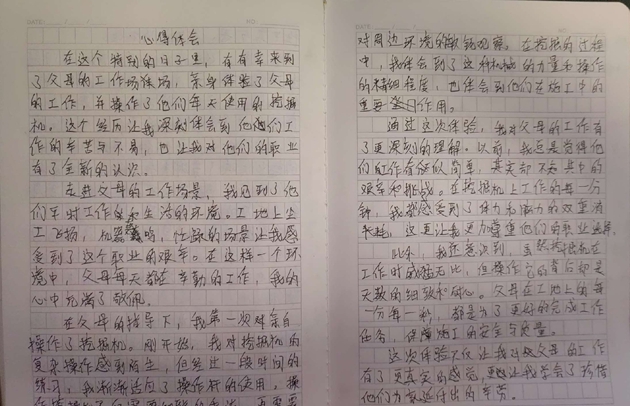 心得体会
在这个特别的日子里，有幸来到
了父母的工作场现场，亲身体验了父母
的工作，并操作了他们每天使用的挖掘
机。这个经历让我深刻体会到他们工
作的辛苦与不易，也让我对他们的职业
有了全新的认识。
在进父母的工作场景，我见到了他
们平时工作和生活的环境。工地上尘
土飞扬，机器轰鸣，忙碌的场景让我感
受到了这个职业的艰辛。在这样一个环
境中，父母每天都在辛勤的工作，我的
心中充满了敬佩。
在父母的指导下，我第一次对亲自
操作了挖掘机。刚开始，我对挖掘机的
复杂操作感到陌生，但经过一段时间的
练习，我渐渐适应了操作杆的使用。操
对周边环境的敏锐观察。在挖掘的过程
中，我体会到了这种机械的力量和操作
的精细程度，也体会到他们在施工中的
重要作用。
通过这次体验，我对父母的工作有
了更深刻的理解。以前，我总是觉得他
们的工作看似简单，其实却不知其中的
艰辛和挑战。在挖掘机上工作的每一分
钟，我都感受到了体力和脑力的双重消
耗，这更让我更加尊重他们的职业选择。
此外，我还意识到，虽然挖掘机在
工作时威猛无比，但操作它的背后却是
无数的细致和耐心。父母在工地上的每
一分每一秒，都是为了更好的完成工作
任务，保障施工的安全与质量。
这次体验不仅让我对父母的工作
有了更真实的感觉，更让我学会了珍惜
他们为家庭付出的辛劳。